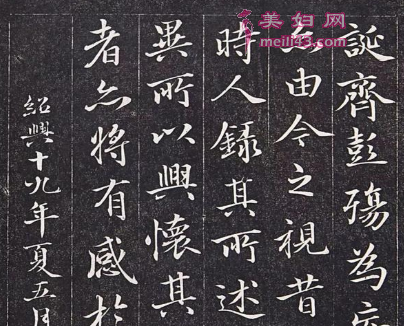 美妇网
meili43.com
誕齊彭殤為
亦由今之視昔
時人錄其所述
異所以興懷其
者亦將有感於
紹興十九年夏五月